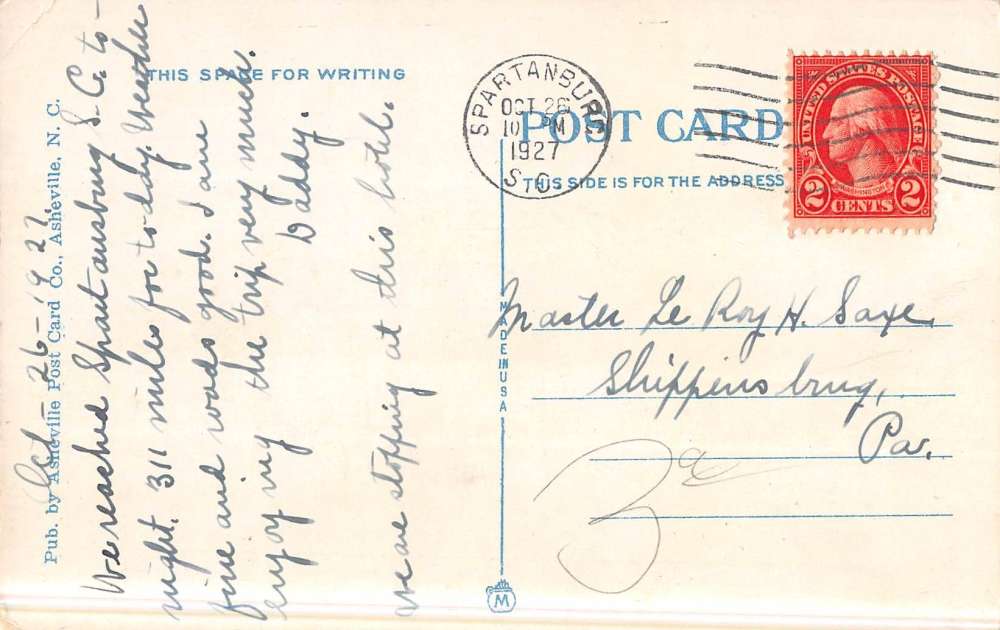 THIS SPACE FOR WRITING
Pub. by Asheville Post Card Co., Asheville, N. C.
Oct- 26-1927
We reached Spartansburg S. C. to-
night. 311 miles for today. Weather
fine and roads good. I am
enjoying the trip very much.
Daddy.
We are stopping at this hotel.
SPARTANBURG
OCT 26
10 PM
1927
S. C.
POST CARD
THIS SIDE IS FOR THE ADDRESS
UNITED STATES POSTAGE
WASHINGTON
2 CENTS 2
MADE IN USA
Master Le Roy H. Saxe
Shippensburg,
Pa.
M